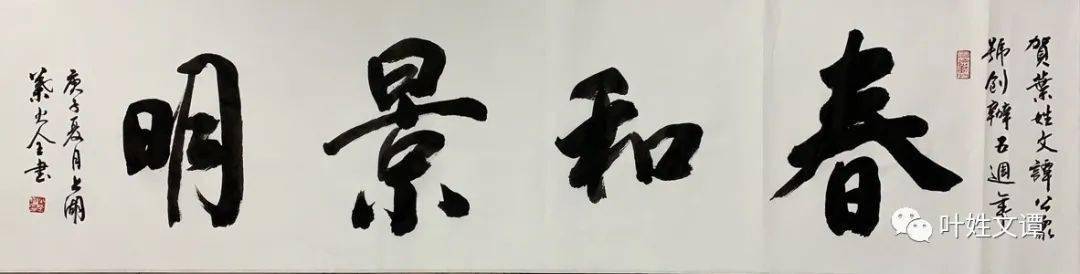 賀葉姓文譚公眾
號創辦五週年
春和景明
庚子夏月上
葉全書
叶姓文谭